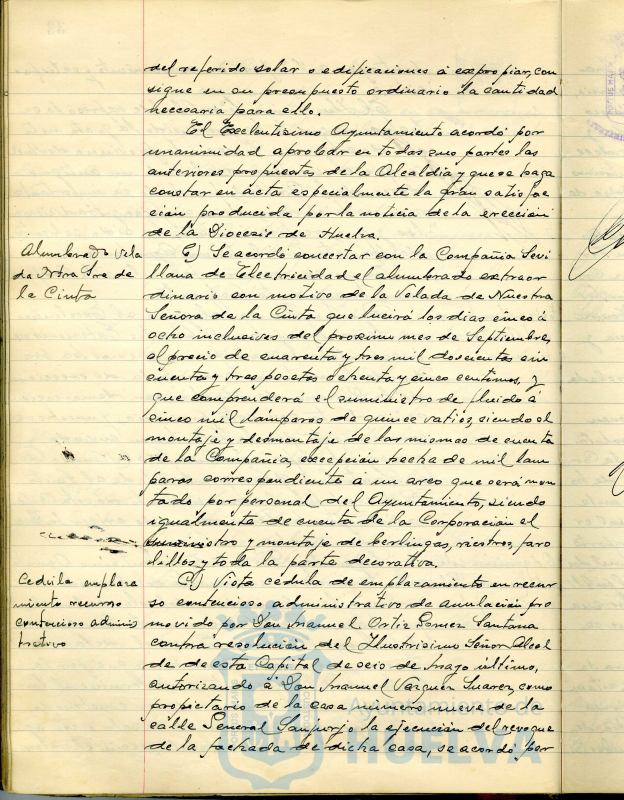 del referido solar o edificaciones a expropiar, con
signe en su presupuesto ordinario la cantidad
necesaria para ello.
El Excelentísimo Ayuntamiento acordó por
unanimidad aprobar en todas sus partes las
anteriores propuestas de la Alcaldía y que se haga
constar en acta especialmente la gran satisfac
ción producida por la noticia de la erección
de la Diocesis de Huelva.
Alumbrado vela
da Ntra Sra de
la Cinta
Se acordó concertar con la Compañia Sevi
llana de Electricidad el alumbrado extraor
dinario con motivo de la Velada de Nuestra
Señora de la Cinta que lucirá los dias cinco á
ocho inclusives del proximo mes de Septiembre,
al precio de cuarenta y tres mil doscientas cin
cuenta y tres pesetas ochenta y cinco centimos, y
que comprenderá el suministro de fluido á
cinco mil lámparas de quince vatios, siendo el
montaje y desmontaje de las mismas de cuenta
de la Compañia, excepción hecha de mil lam
paras correspondiente á un arco que será mon
tado por personal del Ayuntamiento, siendo
igualmente de cuenta de la Corporación el
suministro y montaje de berlingas, riostras, faro
lillos y toda la parte decorativa.
Cedula emplaza
miento recurso
contencioso adminis
trativo
Vista cédula de emplazamiento en recur
so contencioso administrativo de anulación pro
movido por Don Manuel Ortiz Gomez Santana
contra resolución del Ilustrisimo Señor Alcal
de de esta Capital de seis de Mayo último,
autorizando á Don Manuel Vazquez Suarez, como
propietario de la casa número nueve de la
calle General Sanjurjo la ejecución del revoque
de la fachada de dicha casa, se acordó por
Ayuntamiento de
HUELVA